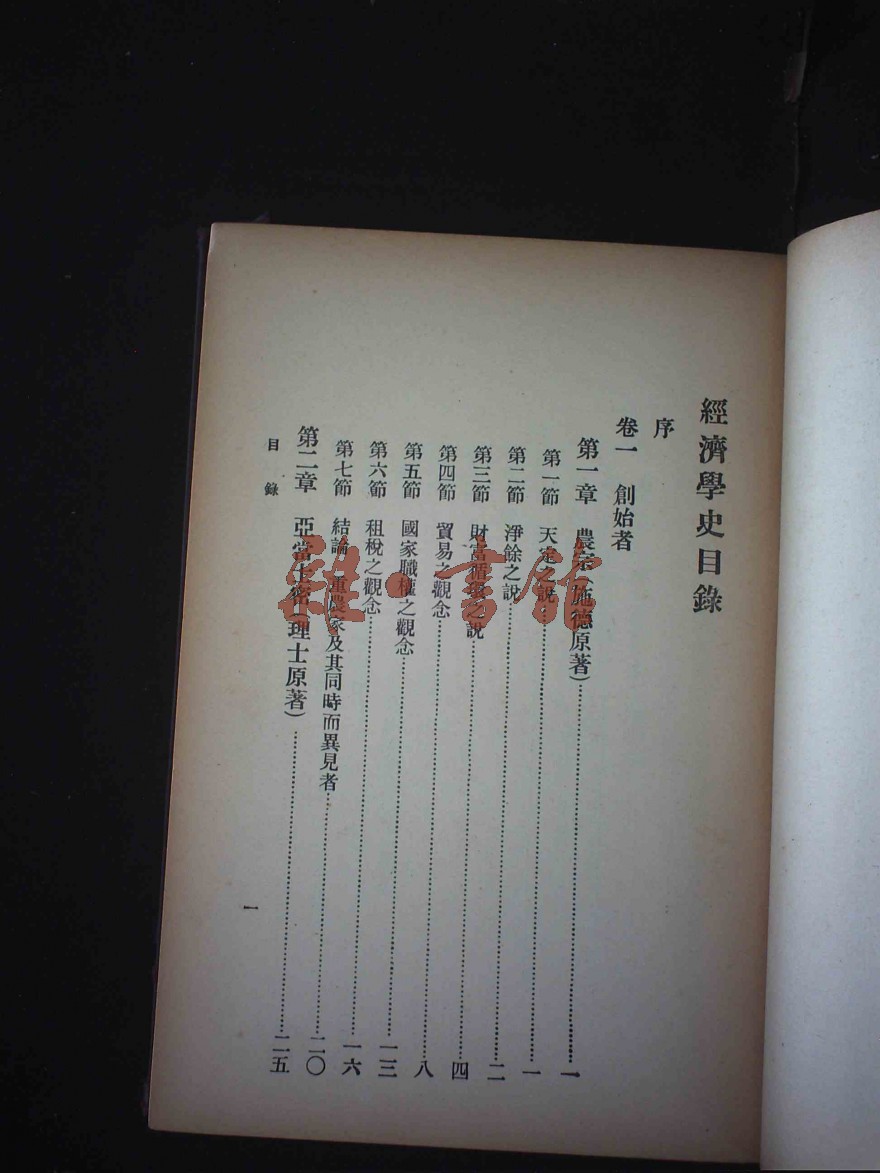 經濟學史目錄
序
卷一 創始者
第一章 農宗(施德原著)………一
第一節 天定之說………一
第二節 淨餘之說………二
第三節 財富循環之說………四
第四節 貿易之觀念………八
第五節 國家職權之觀念………一三
第六節 租稅之觀念………一六
第七節 結論 重農家及其同時而異見者………二〇
第二章 亞當士密(理士原著)………二五
目錄
一